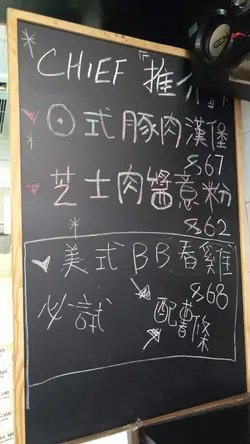 CHIEF「推介」
日式豚肉漢堡
$67
芝士肉醬意粉
$62
美式BB春雞
$68
必試
配薯條